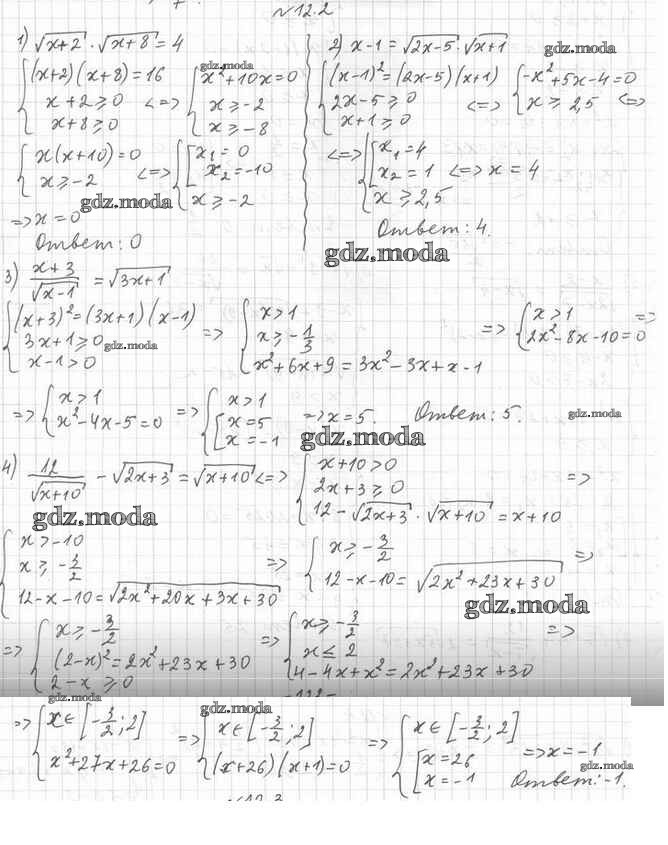 №12.2
1) √(x+2) · √(x+8) = 4
{ (x+2)(x+8) = 16
x+2 ≥ 0
x+8 ≥ 0
<=> { x²+10x=0
x ≥ -2
x ≥ -8
{ x(x+10)=0
x ≥ -2
<=> { [ x₁ = 0
x₂ = -10
x ≥ -2
=> x = 0
Ответ: 0
2) x-1 = √(2x-5) · √(x+1)
{ (x-1)² = (2x-5)(x+1)
2x-5 ≥ 0
x+1 ≥ 0
<=> { -x²+5x-4=0
x ≥ 2,5
<=>
<=> { [ x₁=4
x₂=1
x ≥ 2,5
<=> x = 4
Ответ: 4.
3) (x+3)/√(x-1) = √(3x+1)
{ (x+3)² = (3x+1)(x-1)
3x+1 ≥ 0
x-1 > 0
=> { x>1
x ≥ -1/3
x²+6x+9 = 3x²-3x+x-1
=> { x>1
2x²-8x-10=0
=>
=> { x>1
x²-4x-5=0
=> { x>1
[ x=5
x=-1
=> x=5.
Ответ: 5.
4) 12/√(x+10) - √(2x+3) = √(x+10) <=>
{ x+10>0
2x+3 ≥ 0
12-√(2x+3) · √(x+10) = x+10
=>
{ x>-10
x ≥ -3/2
12-x-10 = √(2x²+20x+3x+30)
=> { x ≥ -3/2
12-x-10 = √(2x²+23x+30)
=>
=> { x ≥ -3/2
(2-x)² = 2x²+23x+30
2-x ≥ 0
=> { x ≥ -3/2
x ≤ 2
4-4x+x² = 2x²+23x+30
=>
=> { x∈[-3/2; 2]
x²+27x+26=0
=> { x∈[-3/2; 2]
(x+26)(x+1)=0
=> { x∈[-3/2; 2]
[ x=26
x=-1
=> x=-1
Ответ: -1.
gdz.moda
gdz.moda
gdz.moda
gdz.moda
gdz.moda
gdz.moda
gdz.moda
gdz.moda
gdz.moda
gdz.moda
gdz.moda
gdz.moda